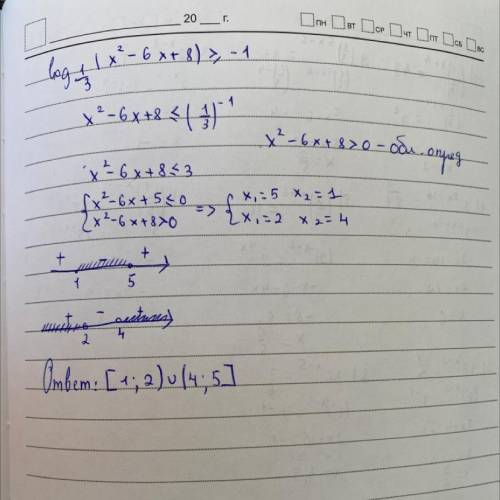 20 ___ г. ПН ВТ СР ЧТ ПТ СБ ВС
log_{1/3} (x² - 6x + 8) ≥ -1
x² - 6x + 8 ≤ (1/3)^{-1}
x² - 6x + 8 > 0 - обл. опред
x² - 6x + 8 ≤ 3
{ x² - 6x + 5 ≤ 0
{ x² - 6x + 8 > 0
=> { x₁ = 5 x₂ = 1
{ x₁ = 2 x₂ = 4
+ +
1 5
+ - +
2 4
Ответ: [1; 2) ∪ (4; 5]